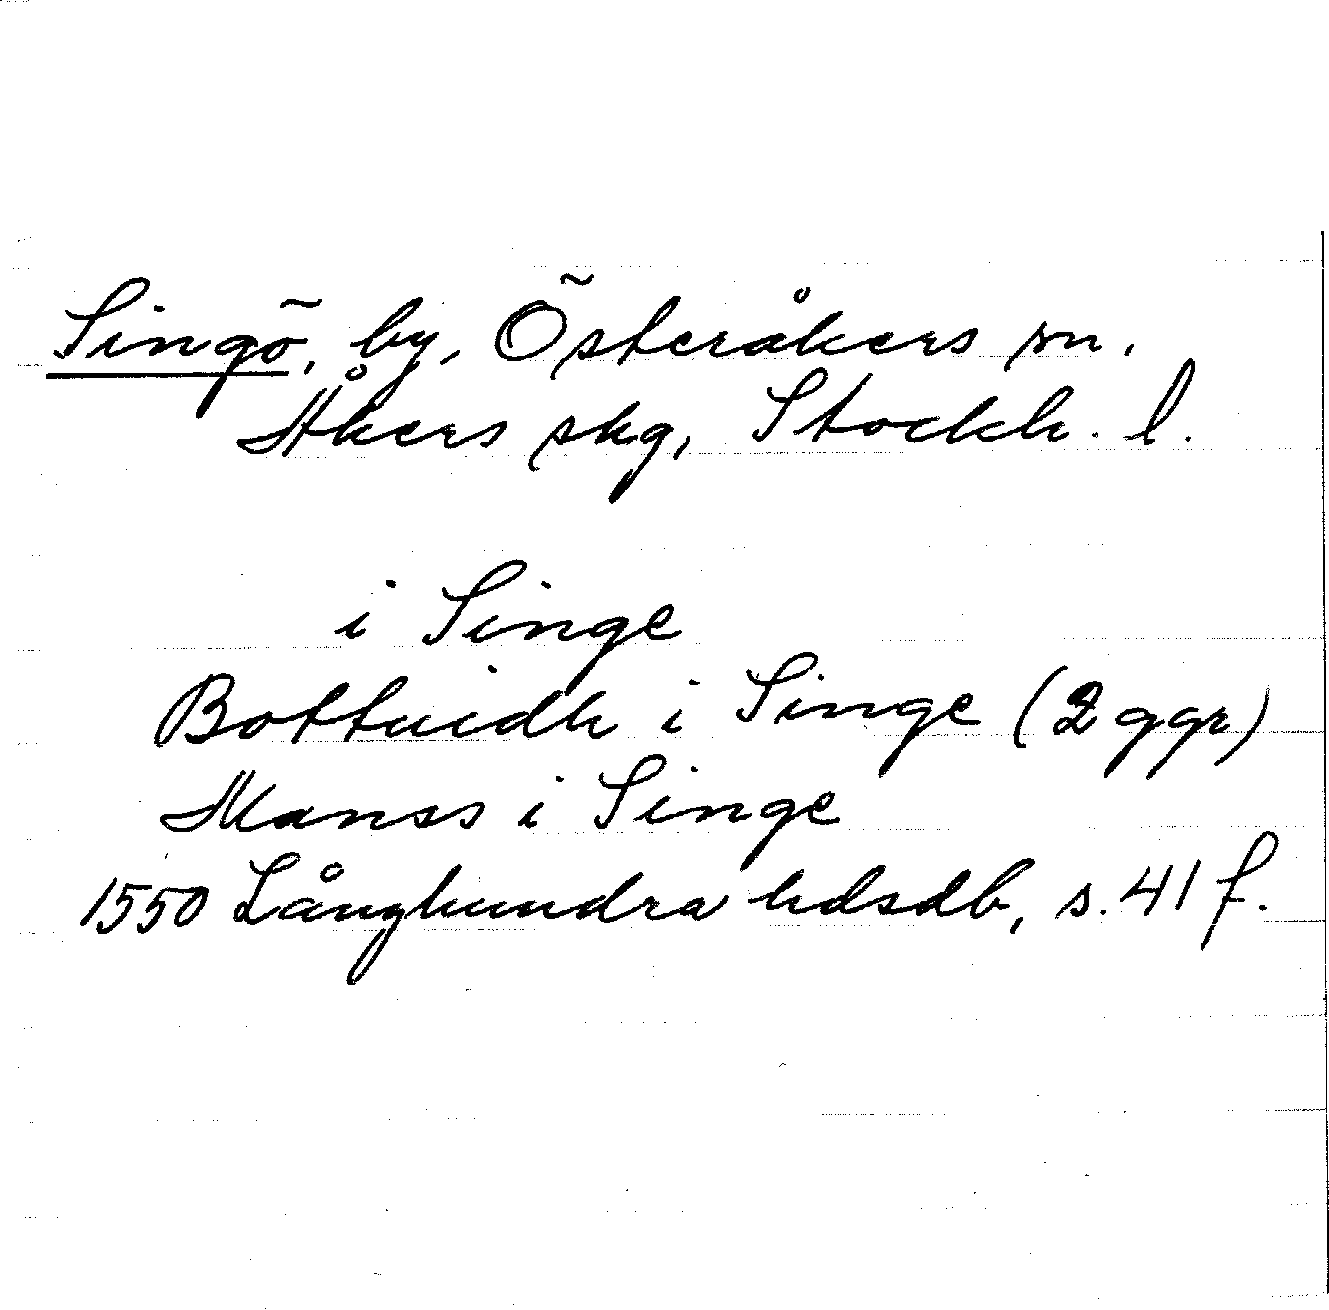 Singö, by, Österåkers sn.
Åkers skg, Stockh. l.
i Singe
Bottuidh i Singe (2 ggr)
Manss i Singe
1550 Långhundra hdsdb, s. 41 f.